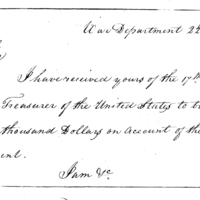 War Department 22
I have received yours of the 17th
Treasurer of the United States to be
thousand Dollars on account of the
ent.
I am &c.